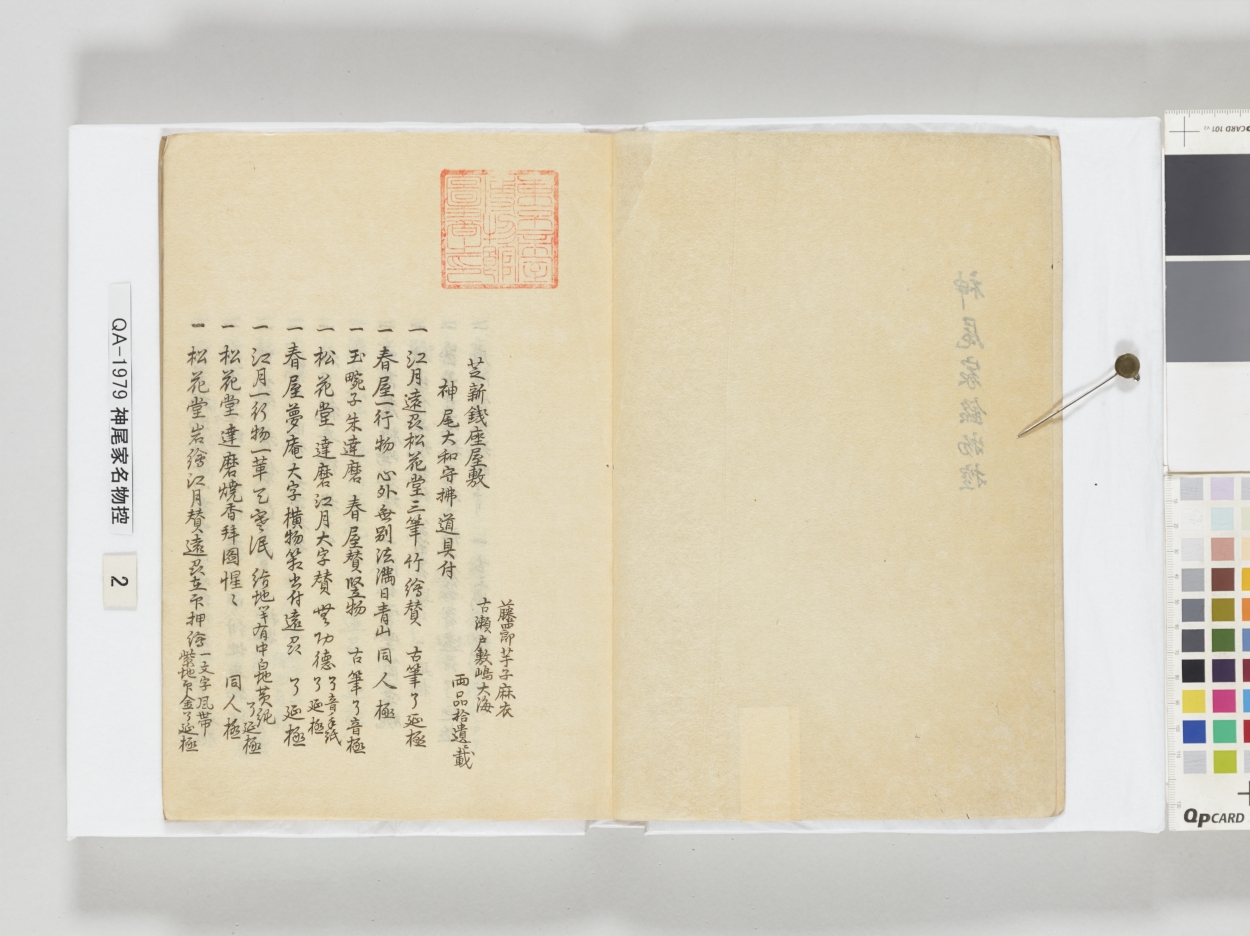 芝新錢座屋敷
神尾大和守拂道具付
藤四郎芋子麻衣
古瀬戸敷嶋大海
両品拾遺ニ載
一 江月遠列松花堂三筆竹繪賛 古筆了延極
一 春屋一行物 心外無別法満目青山 同人極
一 玉畹子朱達磨 春屋賛竪物 古筆了音極
一 松花堂達磨江月大字賛 無功徳 了音手紙 了延極
一 春屋夢庵大字横物 了延極
一 江月一行物 有 了延極
一 松花堂達磨焼香拜圖 同人極
一 松花堂岩繪江月賛 押繪 一文字風帯 紫地 了延極
神尾家名物控
QA-1979 神尾家名物控
2
QPCARD 101
QPCARD